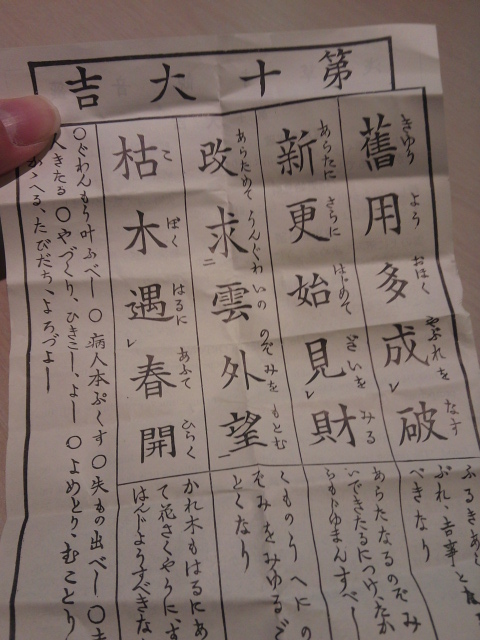 第十大吉
舊用多成破
きゆう よう おほく やぶれを なす
ふるきあ
ぶれ、吉事と
べきなり
新更始見財
あらたに さらに はじめて ざいを みる
あらたなるのぞみ
いできたるにつけ、たか
らもじゆまんすべし
改求雲外望
あらためて うんぐわいの のぞみを もとむ
くものうへにの
ぞみをみゆるご
とくなり
枯木遇春開
こ ぼく はるに あふて ひらく
かれ木もはるにあ
て花さくやうに、す
はんじようすべきな
〇ぐわんもう叶ふべし 〇病人本ぷくす 〇失もの出べし 〇
人きたる 〇やづくり、ひきこし、よし 〇よめとり、むことり
かゝへる、たびだち、よろづよし